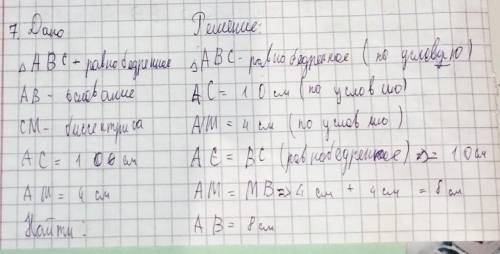 7. Дано Решение:
△ ABC - равнобедренное △ ABC - равнобедренное (по условую)
AB - основание AC = 10 см (по условию)
CM - биссектриса AM = 4 см (по условию)
AC = 10 см AC = BC (равнобедренное) ⇒ = 10 см
AM = 4 см AM = MB ⇒ 4 см + 4 см = 8 см
Найти: AB = 8 см